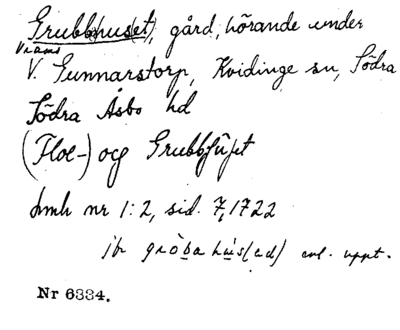 Grubbhus(et), gård, hörande under
Vrams
V. Gunnarstorp, Kvidinge sn, Södra
Södra Åsbo hd
(Floe-) og Grubbhûset
dmh nr 1:2, sid. 7, 1722
jfr gròba hùs(əd) enl. uppt.
Nr 6334.